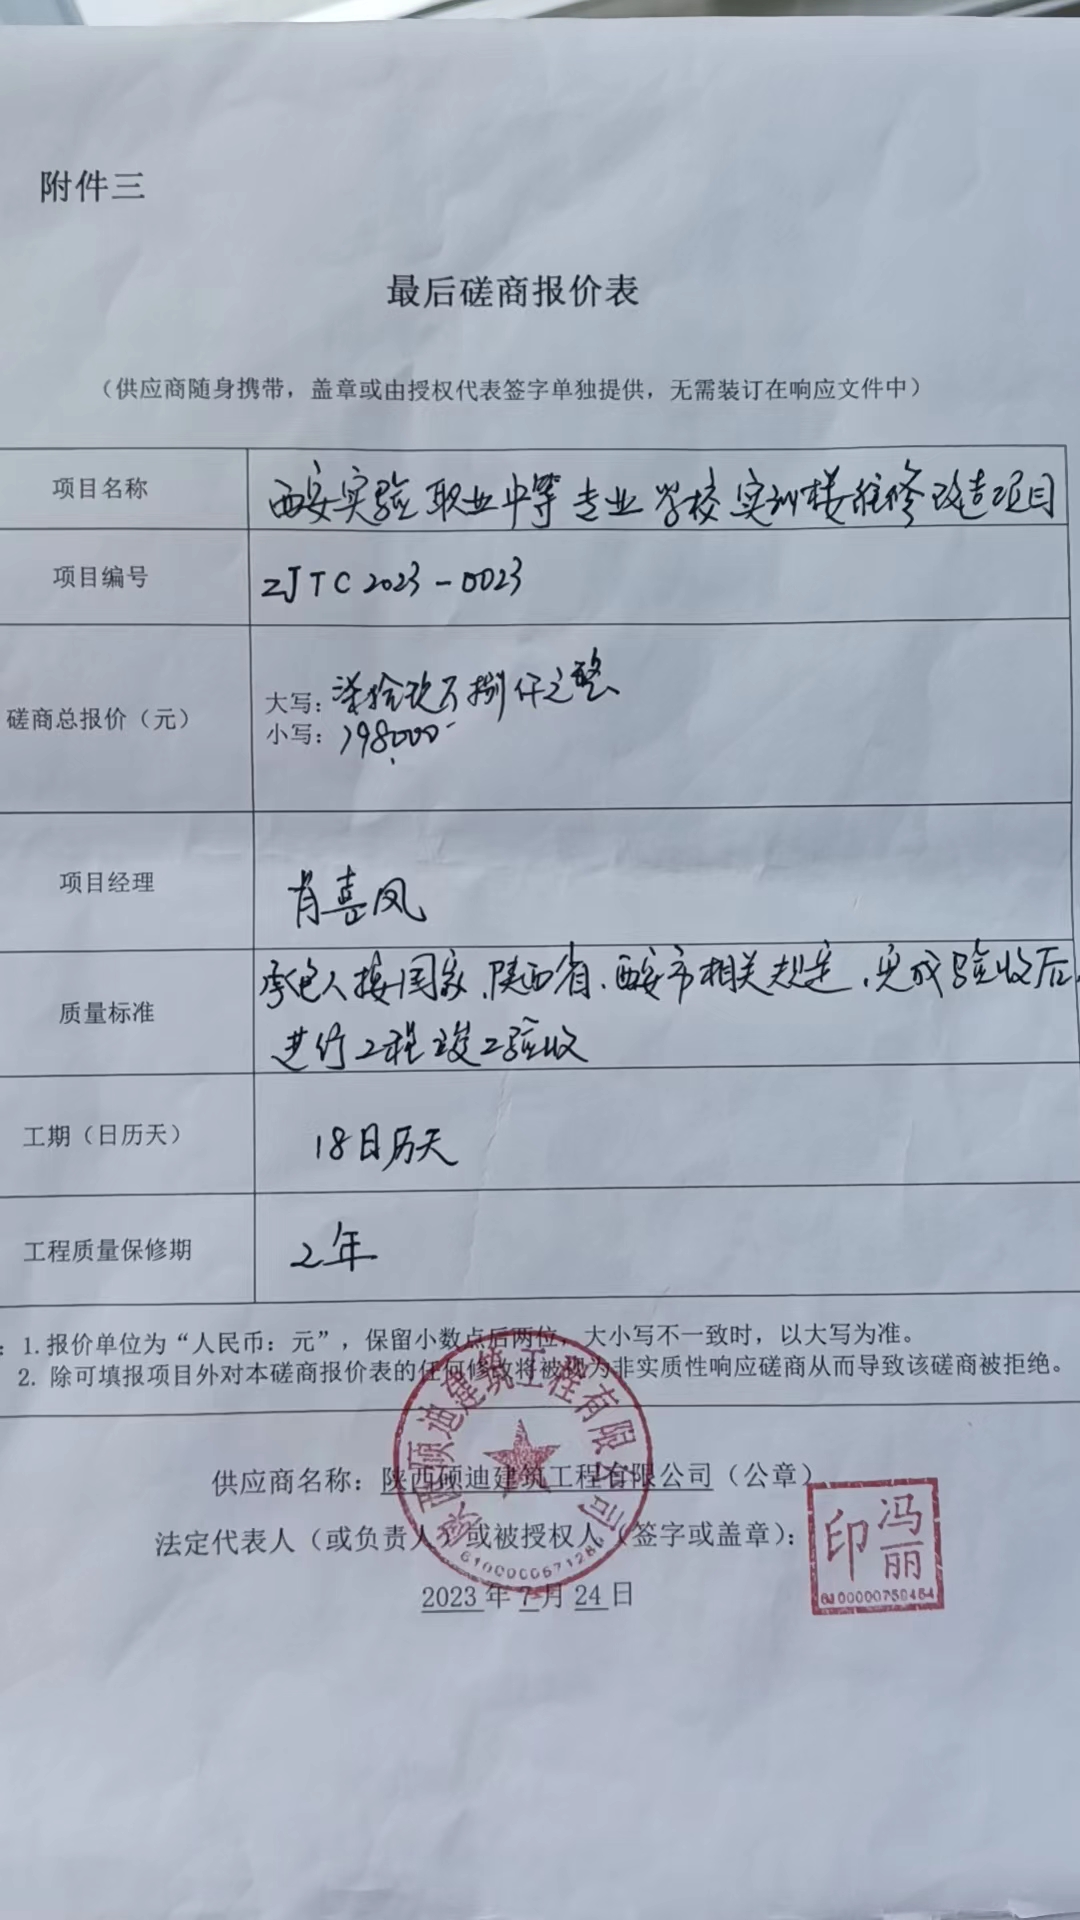 附件三
最后磋商报价表
（供应商随身携带，盖章或由授权代表签字单独提供，无需装订在响应文件中）
项目名称 西安实验职业中等专业学校实训楼维修改造项目
项目编号 ZJTC2023-0023
磋商总报价（元）
大写：柒拾玖万捌仟元整
小写：798000
项目经理 肖喜凤
质量标准
承包人按国家、陕西省、西安市相关规定，完成验收后，
进行工程竣工验收
工期（日历天） 18日历天
工程质量保修期 2年
：1.报价单位为“人民币：元”，保留小数点后两位，大小写不一致时，以大写为准。
2. 除可填报项目外对本磋商报价表的任何修改将被视为非实质性响应磋商从而导致该磋商被拒绝。
供应商名称：陕西硕迪建筑工程有限公司（公章）
法定代表人（或负责人）或被授权人（签字或盖章）：
2023 年 7 月 24 日
陕西硕迪建筑工程有限公司
冯丽印